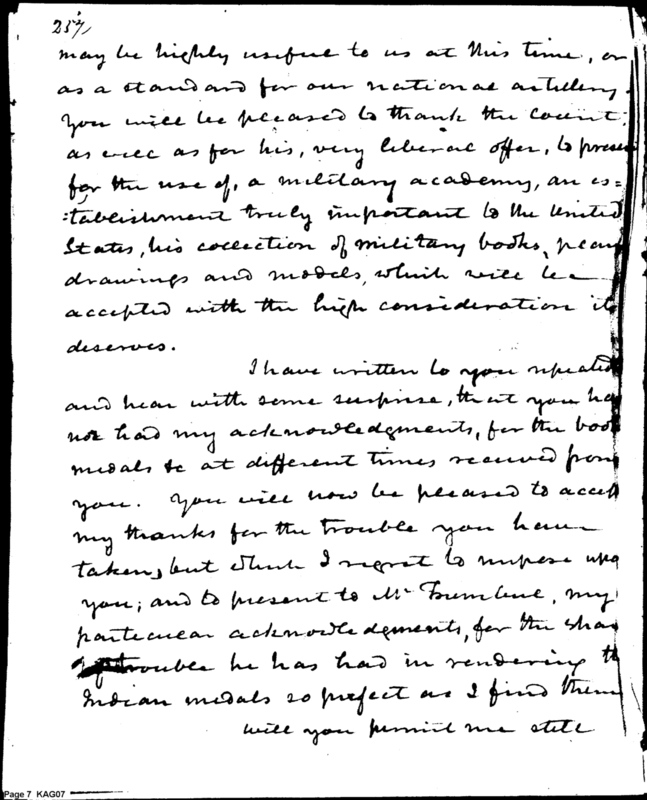 257,
may be highly useful to us at this time, or
as a standard for our national artillery.
You will be pleased to thank the Count,
as well as for his, very liberal offer, to presen
for the use of, a military academy, an es=
=tablishment truly important to the United
States, his collection of military books, plan
drawings and models, which will be
accepted with the high consideration it
deserves.
I have written to you repeated
and hear with some surprise, that you ha
not had my acknowledgments, for the boo
medals &c at different times received from
you. You will now be pleased to accep
my thanks for the trouble you have
taken, but which I regret to impose upo
you; and to present to Mr Trumbul, my
particular acknowledgments, for the shar
of trouble he has had in rendering th
Indian medals so perfect as I find them
will you permit me still
Page 7 KAG07